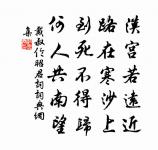 漢宮若遠近
路在寒沙上
到死不得歸
何人共南望
戴叔倫昭君詞詞典網
集